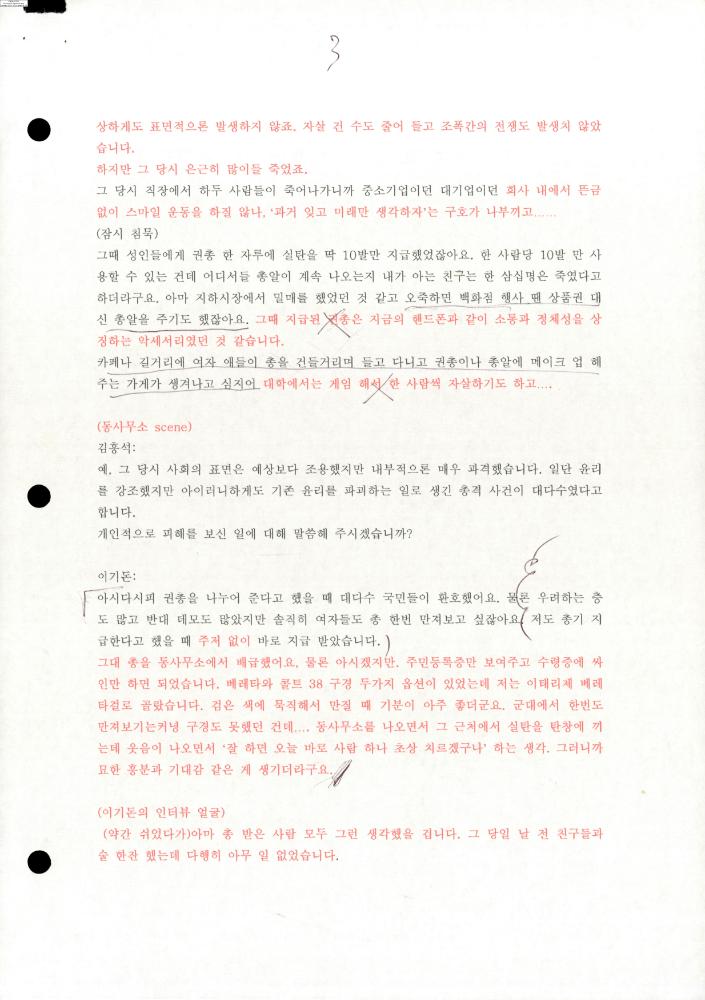 3
상하게도 표면적으론 발생하지 않죠. 자살 건 수도 줄어 들고 조폭간의 전쟁도 발생치 않았
습니다.
하지만 그 당시 은근히 많이들 죽었죠.
그 당시 직장에서 하두 사람들이 죽어나가니까 중소기업이던 대기업이던 회사 내에서 뜬금
없이 스마일 운동을 하질 않나, ‘과거 잊고 미래만 생각하자’는 구호가 나부끼고……
(잠시 침묵)
그때 성인들에게 권총 한 자루에 실탄을 딱 10발만 지급했었잖아요. 한 사람당 10발 만 사
용할 수 있는 건데 어디서들 총알이 계속 나오는지 내가 아는 친구는 한 삼십명은 죽였다고
하더라구요. 아마 지하시장에서 밀매를 했었던 것 같고 오죽하면 백화점 행사 땐 상품권 대
신 총알을 주기도 했잖아요. 그때 지급된 권총은 지금의 핸드폰과 같이 소통과 정체성을 상
징하는 악세서리였던 것 같습니다.
카페나 길거리에 여자 애들이 총을 건들거리며 들고 다니고 권총이나 총알에 메이크 업 해
주는 가게가 생겨나고 심지어 대학에서는 게임 해서 한 사람씩 자살하기도 하고….
(동사무소 scene)
김홍석:
예. 그 당시 사회의 표면은 예상보다 조용했지만 내부적으론 매우 과격했습니다. 일단 윤리
를 강조했지만 아이러니하게도 기존 윤리를 파괴하는 일로 생긴 총격 사건이 대다수였다고
합니다.
개인적으로 피해를 보신 일에 대해 말씀해 주시겠습니까?
이기돈:
아시다시피 권총을 나누어 준다고 했을 때 대다수 국민들이 환호했어요. 물론 우려하는 층
도 많고 반대 데모도 많았지만 솔직히 여자들도 총 한번 만져보고 싶잖아요. 저도 총기 지
급한다고 했을 때 주저 없이 바로 지급 받았습니다.
그대 총을 동사무소에서 배급했어요. 물론 아시겠지만. 주민등록증만 보여주고 수령증에 싸
인만 하면 되었습니다. 베레타와 콜트 38 구경 두가지 옵션이 있었는데 저는 이태리제 베레
타걸로 골랐습니다. 검은 색에 묵직해서 만질 때 기분이 아주 좋더군요. 군대에서 한번도
만져보기는커녕 구경도 못했던 건데…. 동사무소를 나오면서 그 근처에서 실탄을 탄창에 끼
는데 웃음이 나오면서 ‘잘 하면 오늘 바로 사람 하나 초상 치르겠구나’ 하는 생각. 그러니까
묘한 흥분과 기대감 같은 게 생기더라구요.
(이기돈의 인터뷰 얼굴)
(약간 쉬었다가)아마 총 받은 사람 모두 그런 생각했을 겁니다. 그 당일 날 전 친구들과
술 한잔 했는데 다행히 아무 일 없었습니다.